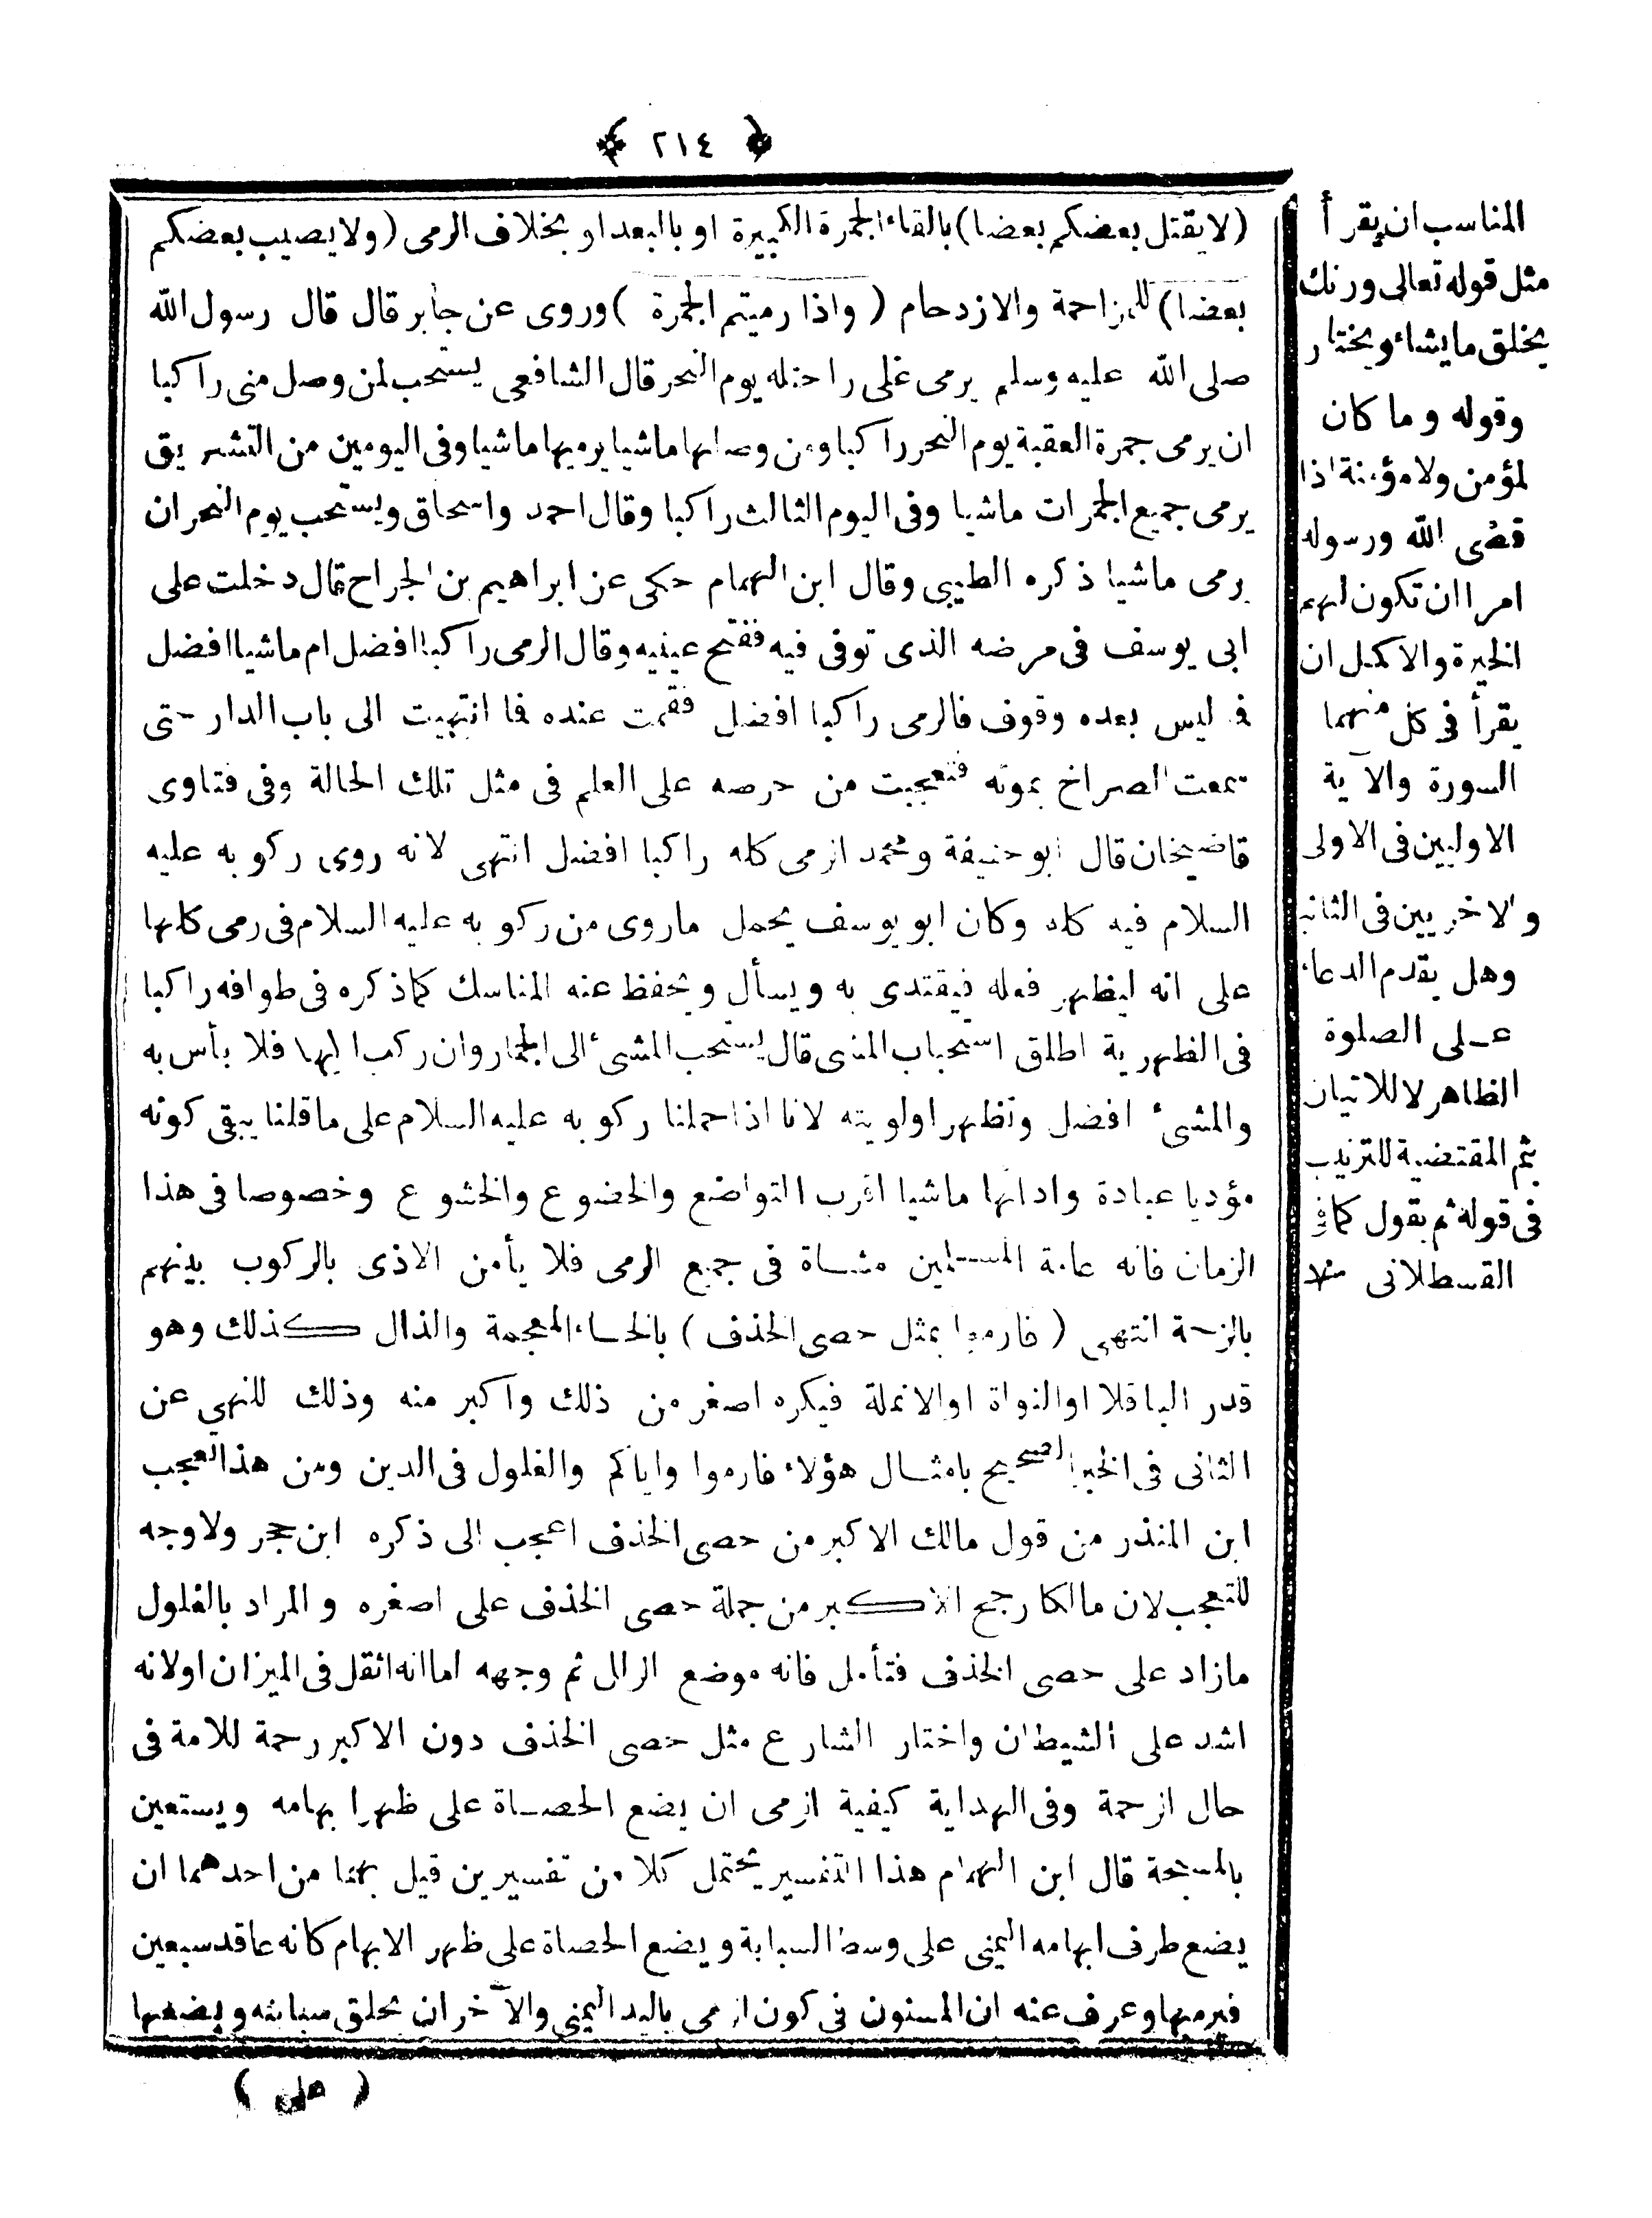 ﴿ ٢١٤ ﴾
(لا يقتل بعضكم بعضا) بالقاء الجمرة الكبيرة او بالبعد او بخلاف الرمى (ولا يصيب بعضكم
بعضا) للمزاحمة والازدحام (واذا رميتم الجمرة) وروى عن جابر قال قال رسول الله
صلى الله عليه وسلم يرمى على راحتله يوم النحر قال الشافعى يستحب لمن وصل منى راكبا
ان يرمى جمرة العقبة يوم النحر راكبا ومن وصلها ماشيا يرميها ماشيا وفى اليومين من التشريق
يرمى جميع الجمرات ماشيا وفى اليوم الثالث راكبا وقال احمد واسحاق ويستحب يوم النحر ان
يرمى ماشيا ذكره الطيبى وقال ابن الهمام حكى عن ابراهيم بن الجراح قال دخلت على
ابى يوسف فى مرضه الذى توفى فيه ففتح عينيه وقال الرمى راكبا افضل ام ماشيا افضل
فا ليس بعده وقوف فالرمى راكبا افضل فقمت عنده فا انتهيت الى باب الدار حتى
سمعت الصراخ بموته فتعجبت من حرصه على العلم فى مثل تلك الحالة وفى فتاوى
قاضيخان قال ابو حنيفة ومحمد الرمى كله راكبا افضل انتهى لانه روى ركوبه عليه
السلام فيه كله وكان ابو يوسف يحمل ماروى من ركوبه عليه السلام فى رمى كلها
على انه ليظهر فعله فيقتدى به ويسأل ويحفظ عنه المناسك كما ذكره فى طوافه راكبا
فى الظهرية اطلق استحباب المشى قال يستحب المشئ الى الجمار وان ركب اليها فلا بأس به
والمشئ افضل وتظهر اولويته لانا اذا حملنا ركوبه عليه السلام على ماقلنا يبقى كونه
مؤديا عبادة واداؤها ماشيا اقرب التواضع والخضوع والخشوع وخصوصا فى هذا
الزمان فانه عامة المسلمين مشاة فى جميع الرمى فلا يأمن الاذى بالركوب بينهم
بالزحمة انتهى (فارموا بمثل حصى الخذف) بالخاء المعجمة والذال كذلك وهو
قدر الباقلا او النواة او الانملة فيكره اصغر من ذلك واكبر منه وذلك للنهى عن
الثانى فى الخبر الصحيح بامثال هؤلاء فارموا واياكم والغلول فى الدين ومن هذا العجب
ابن المنذر من قول مالك الاكبر من حصى الخذف اعجب الى ذكره ابن حجر ولا وجه
للتعجب لان مالكا رجح الاكبر من جملة حصى الخذف على اصغره و المراد بالغلول
مازاد على حصى الخذف فتأمل فانه موضع الزلل ثم وجهه اما انه اثقل فى الميزان او لانه
اشد على الشيطان واختار الشارع مثل حصى الخذف دون الاكبر رحمة للامة فى
حال الزحمة وفى الهداية كيفية الرمى ان يضع الحصاة على ظهر ابهامه ويستعين
بالمسبحة قال ابن الهمام هذا التفسير يحتمل كلا من تفسيرين قيل بهما من احدهما ان
يضع طرف ابهامه اليمنى على وسط السبابة ويضع الحصاة على ظهر الابهام كانه عاقد سبعين
فيرميها وعرف عنه ان المسنون فى كون الرمى باليد اليمنى والآخر ان يحلق سبابته ويضعها
(على)
المناسب ان يقرأ
مثل قوله تعالى وربك
يخلق ما يشاء ويختار
وقوله وما كان
لمؤمن ولا مؤمنة اذا
قضى الله ورسوله
امرا ان تكون لهم
الخيرة والاكمل ان
يقرأ فى كل منهما
السورة والآية
الاوليين فى الاولى
والاخريين فى الثانية
وهل يقدم الدعاء
على الصلوة
الظاهر لا للاتيان
بثم المقتضية للترتيب
فى قوله ثم يقول كما فى
القسطلانى